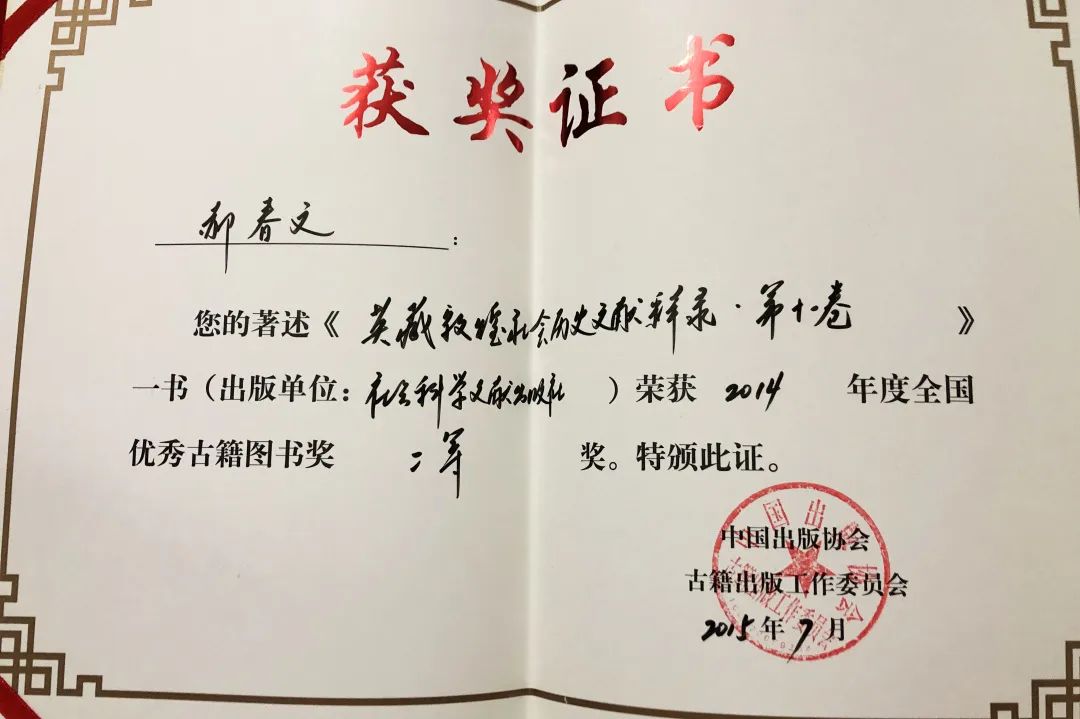 获奖证书
郝春文：
您的著述《英藏敦煌社会历史文献释录·第十一卷》
一书（出版单位：社会科学文献出版社）荣获 2014 年度全国
优秀古籍图书奖 二等 奖。特颁此证。
中国出版协会
古籍出版工作委员会
2015年7月
中国出版协会
古籍出版工作委员会